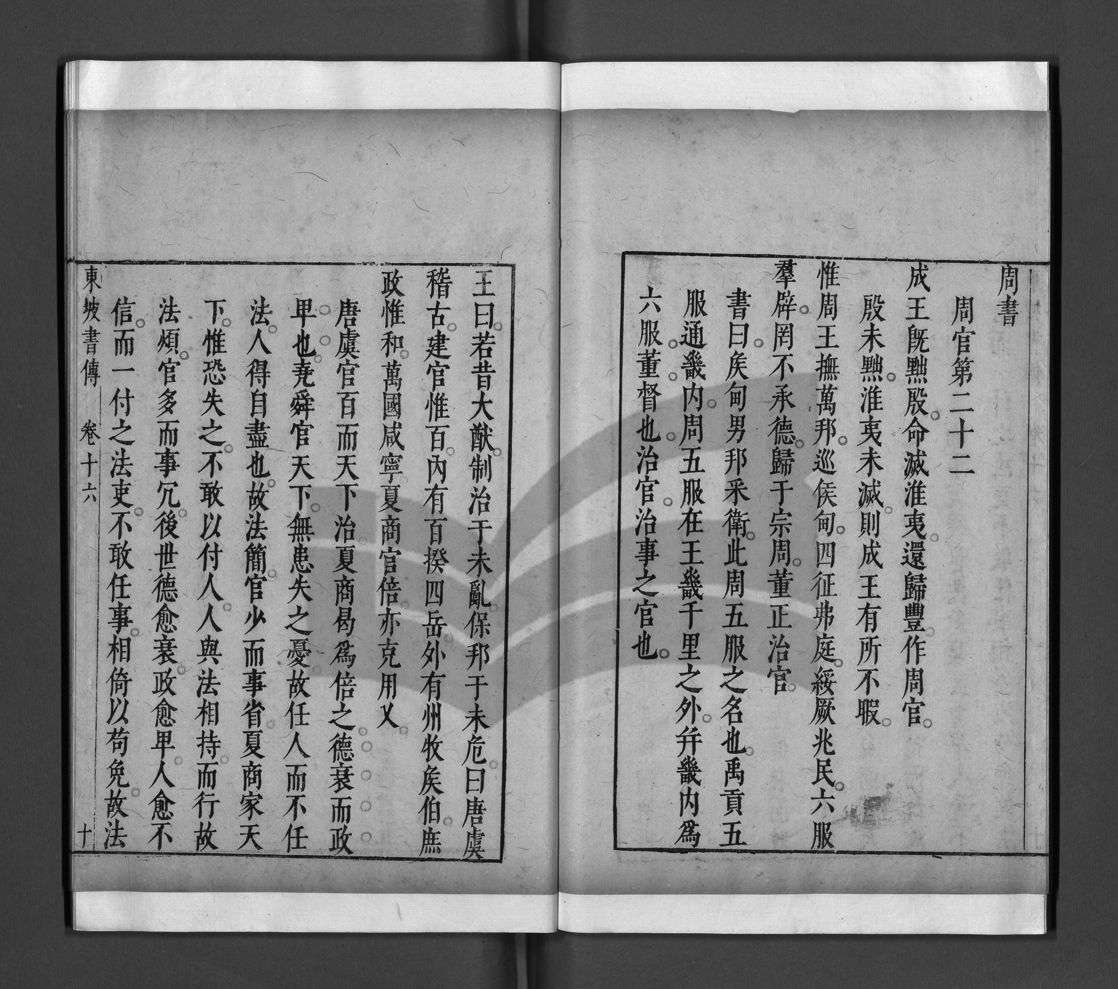 周書
周官第二十二
成王旣黜殷命滅淮夷還歸豐作周官
殷未黜淮夷未滅則成王有所不暇
惟周王撫萬邦巡侯甸四征弗庭綏厥兆民六服
羣辟罔不承德歸于宗周董正治官
書曰侯甸男邦采衛此周五服之名也禹貢五
服通畿内周五服在王畿千里之外并畿内爲
六服董督也治官治事之官也
王曰若昔大猷制治于未亂保邦于未危曰唐虞
稽古建官惟百内有百揆四岳外有州牧侯伯庶
政惟和萬國咸寧夏商官倍亦克用乂
唐虞官百而天下治夏商曷爲倍之德衰而政
卑也堯舜官天下無患失之憂故任人而不任
法人得自盡也故法簡官少而事省夏商家天
下惟恐失之不敢以付人人與法相持而行故
法煩官多而事冗後世德愈衰政愈卑人愈不
信而一付之法吏不敢任事相倚以苟免故法
東坡書傳 卷十六 十